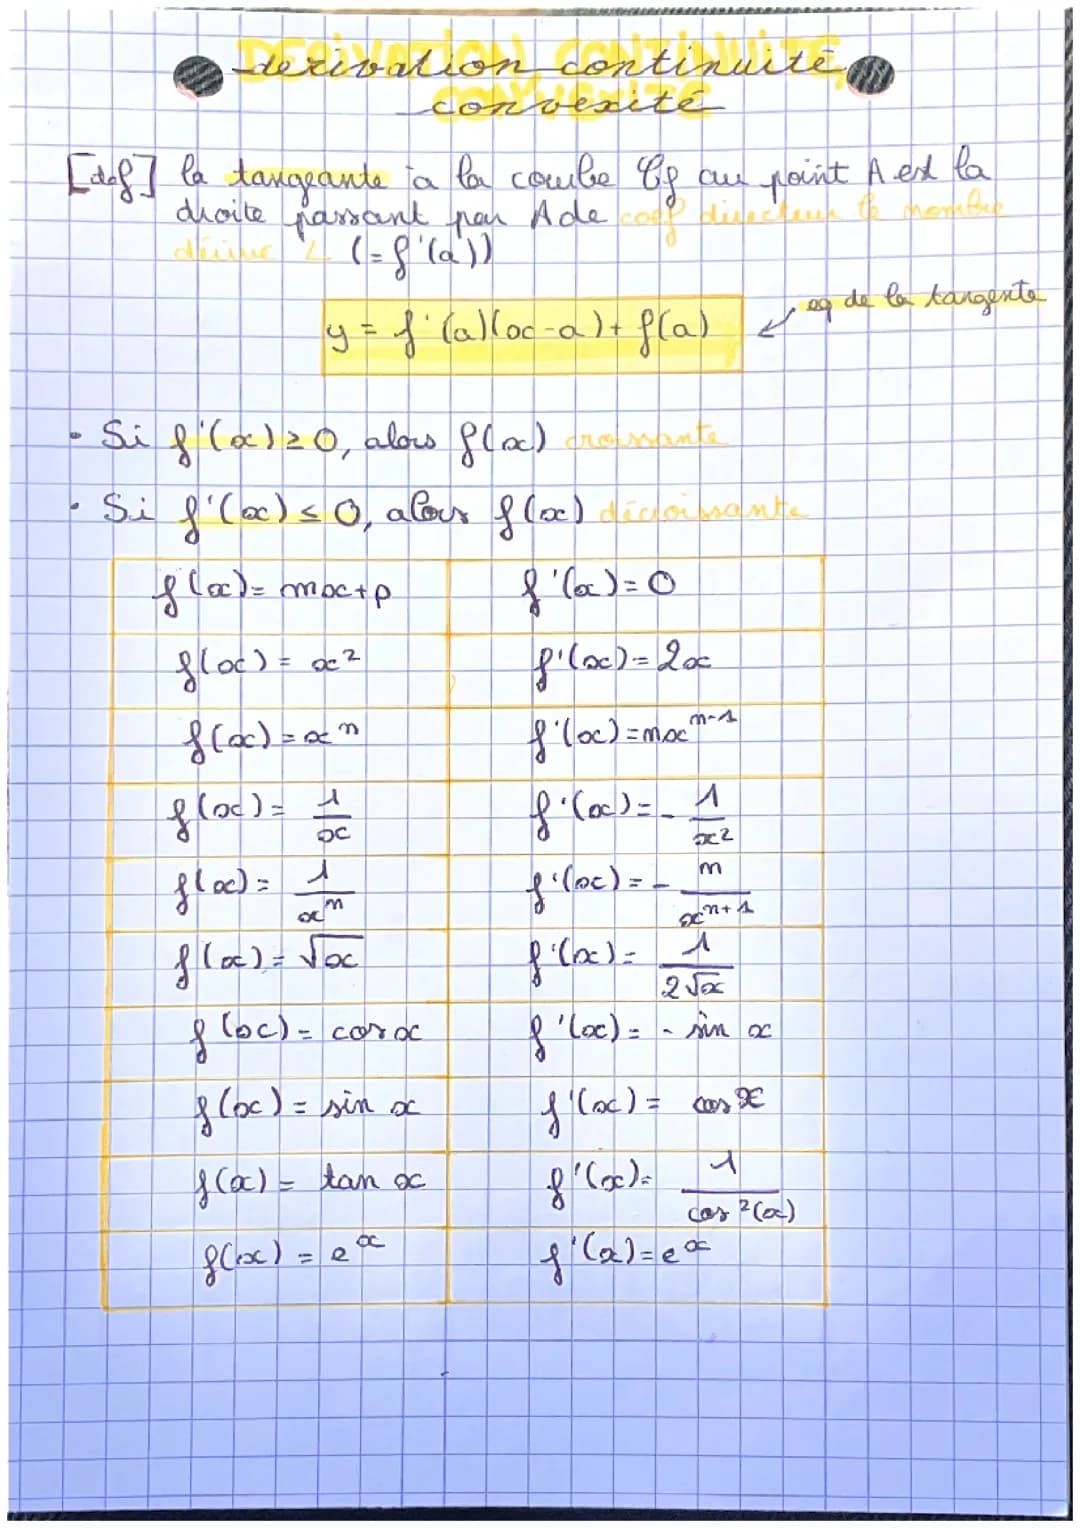 derivation, continuité,
convexité
[def] la tangeante à la courbe Cf au point A est la
droite passant par A de coef directeur le nombre
dérivé L (=f'(a))
y = f'(a)(x-a)+f(a)
eq de la tangente
• Si f'(x)≥0, alors f(x) croissante
• Si f'(x)≤0, alors f(x) décroissante
f(x)= mx+p f'(x)=0
f(x)= x² f'(x)=2x
f(x)=xⁿ f'(x)=nxⁿ⁻¹
f(x)= 1/x f'(x)=- 1/x²
f(x)= 1/xⁿ f'(x)=- n/xⁿ⁺¹
f(x)=√x f'(x)= 1/2√x
f(x)= cos x f'(x)= - sin x
f(x)= sin x f'(x)= cos x
f(x)= tan x f'(x)= 1/cos²(x)
f(x)=eˣ f'(x)=eˣ